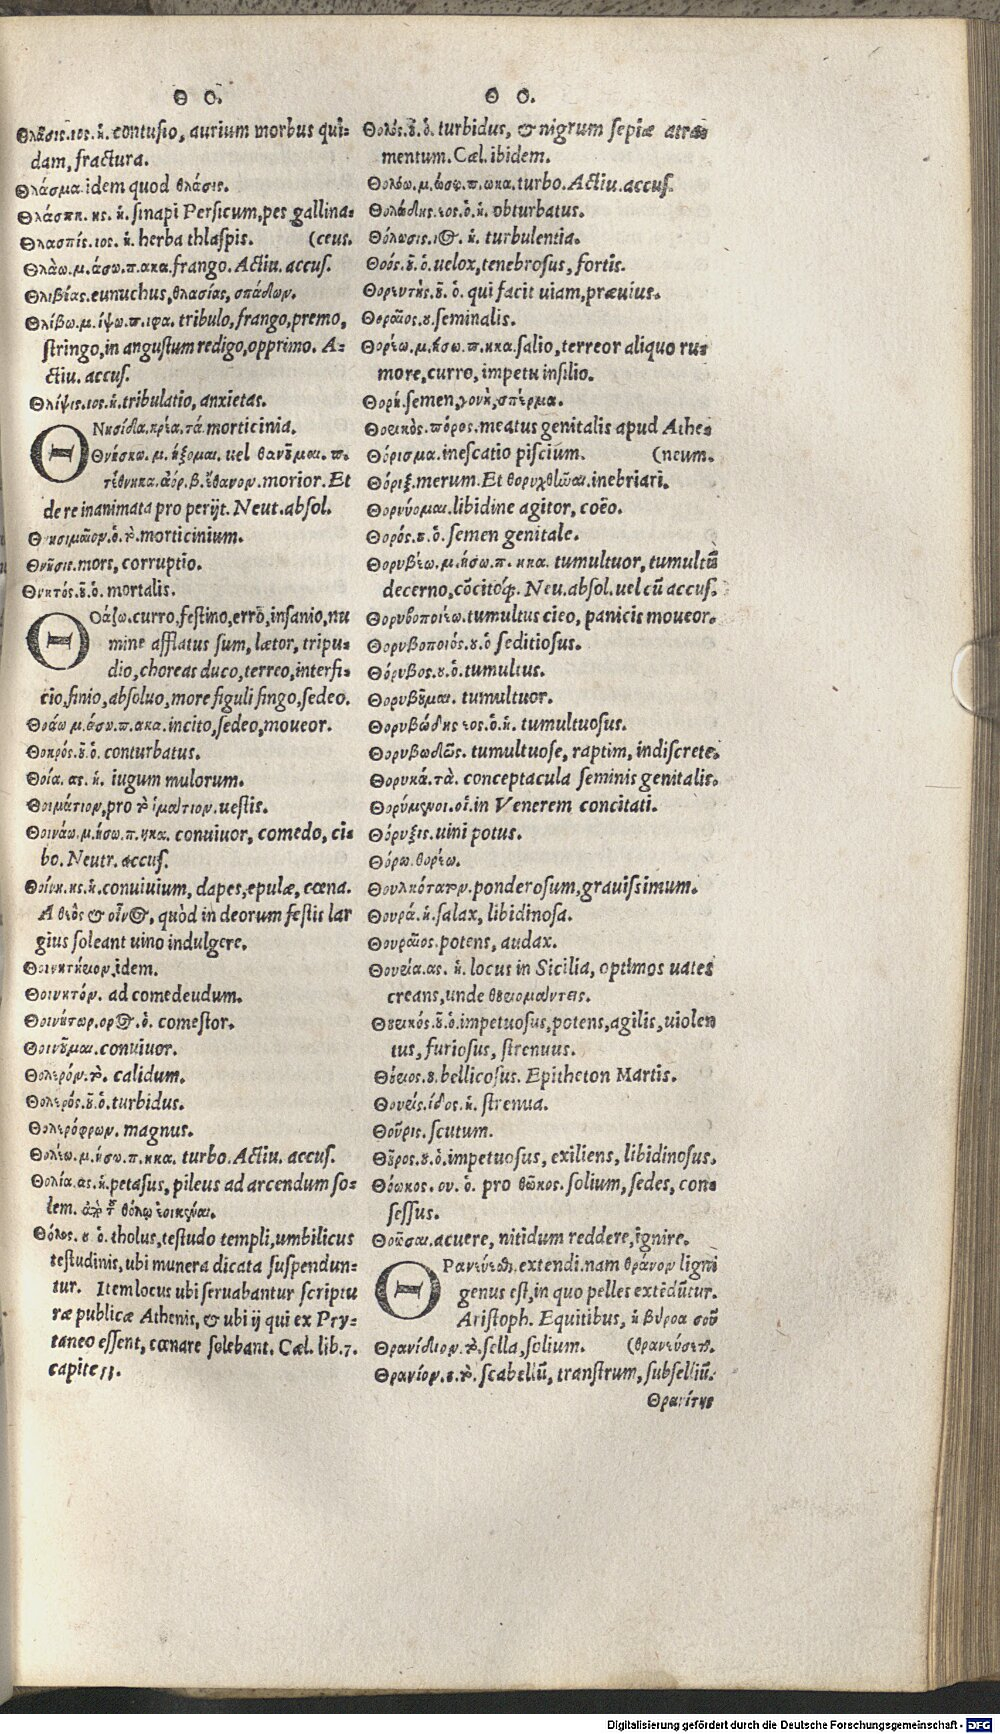 Θ Ο.
Θλᾶσις.ιος.ἡ.contusio, aurium morbus qui-
dam, fractura.
Θλάσμα.idem quod θλάσις.
Θλάσπη.ης.ἡ.sinapi Persicum, pes gallina-
Θλασπίς.ιος.ἡ.herba thlaspis. (ceus.
Θλάω.μ.άσω.π.ακα.frango. Actiu. accus.
Θλιβίας.eunuchus, θλασίας, σπάδων.
Θλίβω.μ.ίψω.π.ιφα. tribulo, frango, premo,
stringo, in angustum redigo, opprimo. A-
ctiu. accus.
Θλίψις.ιος.ἡ.tribulatio, anxietas.
ΘΝησίδια.κρέα.τά.morticinia.
Θνήσκω.μ.ήξομαι.uel θανοῦμαι.π.
τέθνηκα.ἀόρ.β.ἔθανον.morior. Et
de re inanimata pro perijt. Neut. absol.
Θνησιμαῖον.ὁ.τὸ.morticinium.
Θνῆσις.mors, corruptio.
Θνητός.οῦ.ὁ.mortalis.
ΘΟάζω.curro, festino, erro, insanio, nu
mine afflatus sum, lætor, tripu-
dio, choreas duco, terreo, interfi-
cio, finio, absoluo, more figuli fingo, sedeo.
Θοάω μ.άσω.π.ακα.incito, sedeo, moueor.
Θοκρός.οῦ.ὁ. conturbatus.
Θοία.ας.ἡ. iugum mulorum.
Θοιμάτιον, pro τὸ ἱμάτιον.uestis.
Θοινάω.μ.ήσω.π.ηκα. conuiuor, comedo, ci-
bo. Neutr. accus.
Θοίνη.ης.ἡ.conuiuium, dapes, epulæ, cœna.
A θεὸς & οἶνος, quòd in deorum festis lar
gius soleant uino indulgere.
Θοινητήριον.idem.
Θοινητόν. ad comedeudum.
Θοινήτωρ.ορος.ὁ. comestor.
Θοινοῦμαι.conuiuor.
Θολερόν.τὸ. calidum.
Θολερός.οῦ.ὁ.turbidus.
Θολερόφρων. magnus.
Θολέω.μ.ήσω.π.ηκα. turbo. Actiu. accus.
Θολία.ας.ἡ.petasus, pileus ad arcendum so-
lem. ἀπὸ τοῦ θόλῳ ἐοικέναι.
Θόλος.ου ὁ. tholus, testudo templi, umbilicus
testudinis, ubi munera dicata suspendun-
tur. Item locus ubi seruabantur scriptu
ræ publicæ Athenis, & ubi ij qui ex Pry-
taneo essent, cœnare solebant. Cæl. lib. 7.
capite 11.
Θ Ο.
Θολός.οῦ.ὁ. turbidus, & nigrum sepiæ atra-
mentum. Cæl. ibidem.
Θολόω.μ.ώσω.π.ωκα.turbo. Actiu. accus.
Θολώδης.εος.ὁ.ἡ. obturbatus.
Θόλωσις.ιος. ἡ. turbulentia.
Θοός.οῦ.ὁ.uelox, tenebrosus, fortis.
Θορευτής.οῦ. ὁ. qui facit uiam, præuius.
Θοραῖος.ου.seminalis.
Θορέω.μ.ήσω.π.ηκα.salio, terreor aliquo ru-
more, curro, impetu insilio.
Θορή.semen, γονή, σπέρμα.
Θορικὸς.πόρος.meatus genitalis apud Athe-
Θόρισμα.inescatio piscium. (neum.
Θόριξ.merum. Et θορυχθῶαι.inebriari.
Θορνύομαι.libidine agitor, coēo.
Θορός.ου.ὁ. semen genitale.
Θορυβέω.μ.ήσω.π. ηκα. tumultuor, tumultū
decerno, cōcitoq́;. Neu. absol. uel cū accus.
Θορυβοποιέω.tumultus cieo, panicis moueor.
Θορυβοποιός.οῦ.ὁ seditiosus.
Θόρυβος.ου.ὁ.tumultus.
Θορυβοῦμαι. tumultuor.
Θορυβώδης εος.ὁ.ἡ. tumultuosus.
Θορυβωδῶς. tumultuose, raptim, indiscrete.
Θορυκά.τὰ. conceptacula seminis genitalis.
Θορύμενοι.οἱ.in Venerem concitati.
Θόρυξις.uini potus.
Θόρω.θορέω.
Θουλκότατον.ponderosum, grauissimum.
Θουρά.ἡ.salax, libidinosa.
Θουραῖος.potens, audax.
Θουρία.ας. ἡ. locus in Sicilia, optimos uates
creans, unde θουριομάντεις.
Θουρικός.οῦ.ὁ.impetuosus, potens, agilis, uiolen
tus, furiosus, strenuus.
Θούριος.ου.bellicosus. Epitheton Martis.
Θουρίς.ίδος.ἡ. strenua.
Θοῦρις.scutum.
Θοῦρος.ου.ὁ.impetuosus, exiliens, libidinosus.
Θόωκος. ου. ὁ. pro θῶκος. solium, sedes, con-
sessus.
Θοῶσαι.acuere, nitidum reddere, ignire.
ΘΡανεύεσθαι.extendi.nam θράνον ligni
genus est, in quo pelles extēdūtur.
Aristoph. Equitibus, ἡ βύρσα σοῦ
Θρανίδιον.τὸ.sella, solium. (θρανεύσεται.
Θρανίον.ου.τὸ. scabellū, transtrum, subselliū.
Θρανίτης
Digitalisierung gefördert durch die Deutsche Forschungsgemeinschaft - DFG